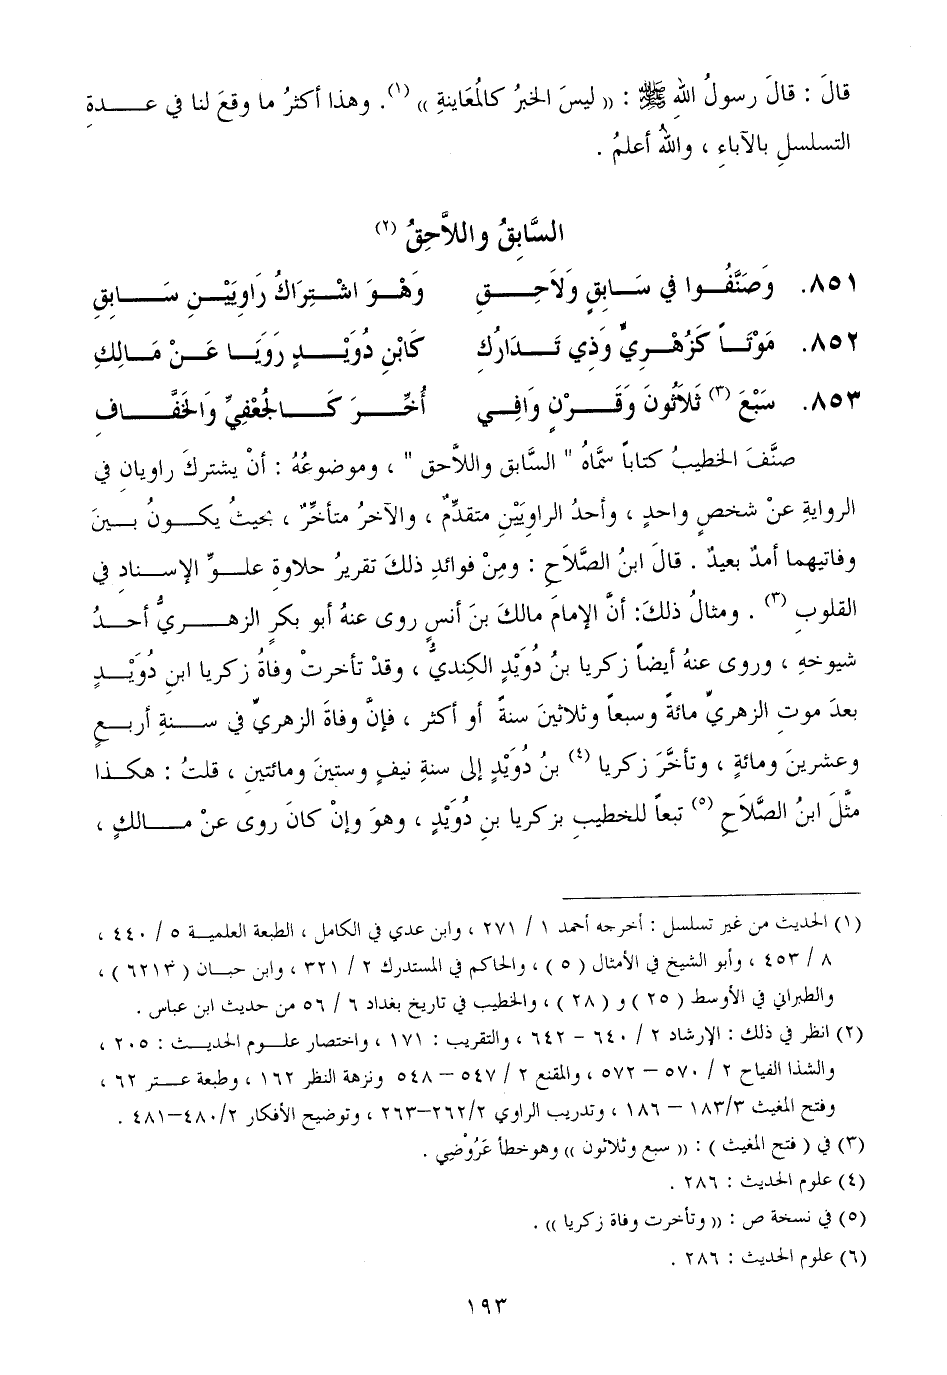 قالَ : قالَ رسولُ اللهِ ﷺ : (( ليسَ الخبرُ كالمُعاينةِ )) (١). وهذا أكثرُ ما وقعَ لنا في عــــدةِ
التسلسلِ بالآباءِ ، واللهُ أعلمُ .
السَّابِقُ واللاَّحِقُ (٢)
٨٥١. وَصَنَّفُــوا في سَــابِقٍ وَلاَحِــقِ وَهْــوَ اشْــتِرَاكُ رَاوِيَيْــنِ سَــابِقِ
٨٥٢. مَوْتَــاً كَزُهْــرِيٍّ وَذِي تَــدَارُكِ كَابْنِ دُوَيْــدٍ رَوَيَــا عَــنْ مَــالِكِ
٨٥٣. سَبْعَ (٣) ثَلاَثُونَ وَقَــرْنٍ وَافِــي أُخِّــرَ كَــالجُعْفِيِّ وَالخَفَّــافِ
صنَّفَ الخطيبُ كتاباً سمَّاهُ " السَّابق واللاَّحق " ، وموضوعُهُ : أنْ يشتركَ راويان في
الروايةِ عنْ شخصٍ واحدٍ ، وأحدُ الراويَيْنِ متقدِّمٌ ، والآخرُ متأخِّرٌ ، بحيثُ يكــونُ بــينَ
وفاتيهما أمدٌ بعيدٌ . قالَ ابنُ الصَّلاَحِ : ومِنْ فوائدِ ذلكَ تقريرُ حلاوةِ علــوِّ الإســنادِ في
القلوبِ (٣) . ومثالُ ذلكَ: أنَّ الإمامَ مالكَ بنَ أنسٍ روى عنهُ أبو بكرٍ الزهــريُّ أحــدُ
شيوخهِ ، وروى عنهُ أيضاً زكريا بنُ دُوَيْدٍ الكِنديُّ ، وقدْ تأخرتْ وفاةُ زكريا ابنِ دُوَيْــدٍ
بعدَ موتِ الزهريِّ مائةً وسبعاً وثلاثينَ سنةً أو أكثر ، فإنَّ وفاةَ الزهريِّ في ســنةِ أربعٍ
وعشرينَ ومائةٍ ، وتأخَّرَ زكريا (٤) بنُ دُوَيْدٍ إلى سنةِ نيفٍ وستينَ ومائتينِ ، قلتُ : هكــذا
مثَّلَ ابنُ الصَّلاَحِ (٥) تبعاً للخطيبِ بزكريا بنِ دُوَيْدٍ ، وهوَ وإنْ كانَ روى عنْ مــالكٍ ،
(١) الحديث من غير تسلسل : أخرجه أحمد ١ / ٢٧١ ، وابن عدي في الكامل ، الطبعة العلميــة ٥ / ٤٤٠ ،
٨ / ٤٥٣ ، وأبو الشيخ في الأمثال ( ٥ ) ، والحاكم في المستدرك ٢ / ٣٢١ ، وابن حبــان ( ٦٢١٣ ) ،
والطبراني في الأوسط ( ٢٥ ) و ( ٢٨ ) ، والخطيب في تاريخ بغداد ٦ / ٥٦ من حديث ابن عباس .
(٢) انظر في ذلك : الإرشاد ٢ / ٦٤٠ – ٦٤٢ ، والتقريب : ١٧١ ، واختصار علــوم الحديــث : ٢٠٥ ،
والشذا الفياح ٢ / ٥٧٠ – ٥٧٢ ، والمقنع ٢ / ٥٤٧ – ٥٤٨ ونزهة النظر ١٦٢ ، وطبعة عــتر ٦٢ ،
وفتح المغيث ٣/ ١٨٣ – ١٨٦ ، وتدريب الراوي ٢/ ٢٦٢–٢٦٣ ، وتوضيح الأفكار ٢/ ٤٨٠–٤٨١ .
(٣) في ( فتح المغيث ) : (( سبع وثلاثون )) وهو خطأ عَرُوْضِي .
(٤) علوم الحديث : ٢٨٦ .
(٥) في نسخة ص : (( وتأخرت وفاة زكريا )) .
(٦) علوم الحديث : ٢٨٦ .
١٩٣